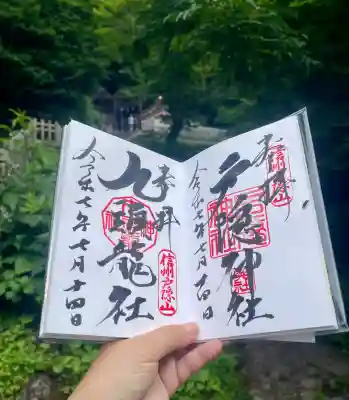 奉拝
信州戸隠山
戸隠神社
令和七年七月十四日
奉拝
信州戸隠山
九頭龍社
令和七年七月十四日